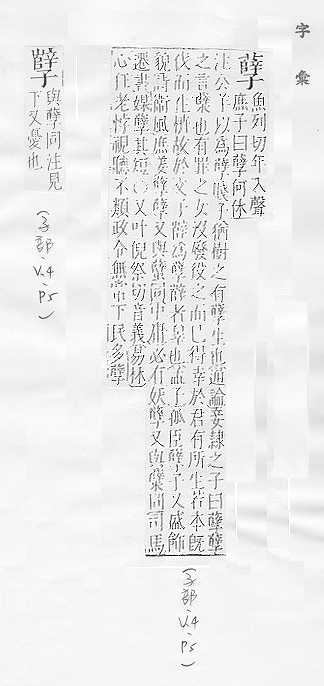 字彙
孽
魚列切年入聲
庶子曰孽何休
注公子以爲孽賤子猶樹之有孽生也通論妾隸之子曰孽孽
之言櫱也有罪之女沒廢役之而已得幸於君有所生若木旣
伐而生枿故於文子辥爲孽辥者辠也孟子孤臣孽子又盛飾
貌詩衞風庶姜孽孽又與蠥同中庸必有妖孽又與櫱同司馬
遷書媒孽其短
又叶倪祭切音義易林
心任老悖視聽不類政令無常下民多孽
(子部、V.4、P5)
孼
與孽同注見
下又憂也
(子部、V.4、P5)